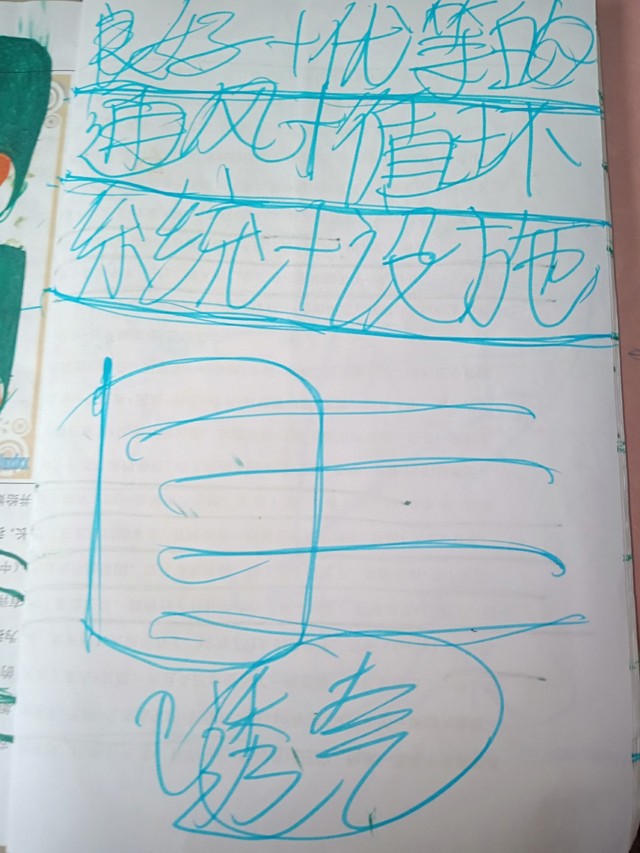 良好+优等的
通风+循环
系统+设施
透气